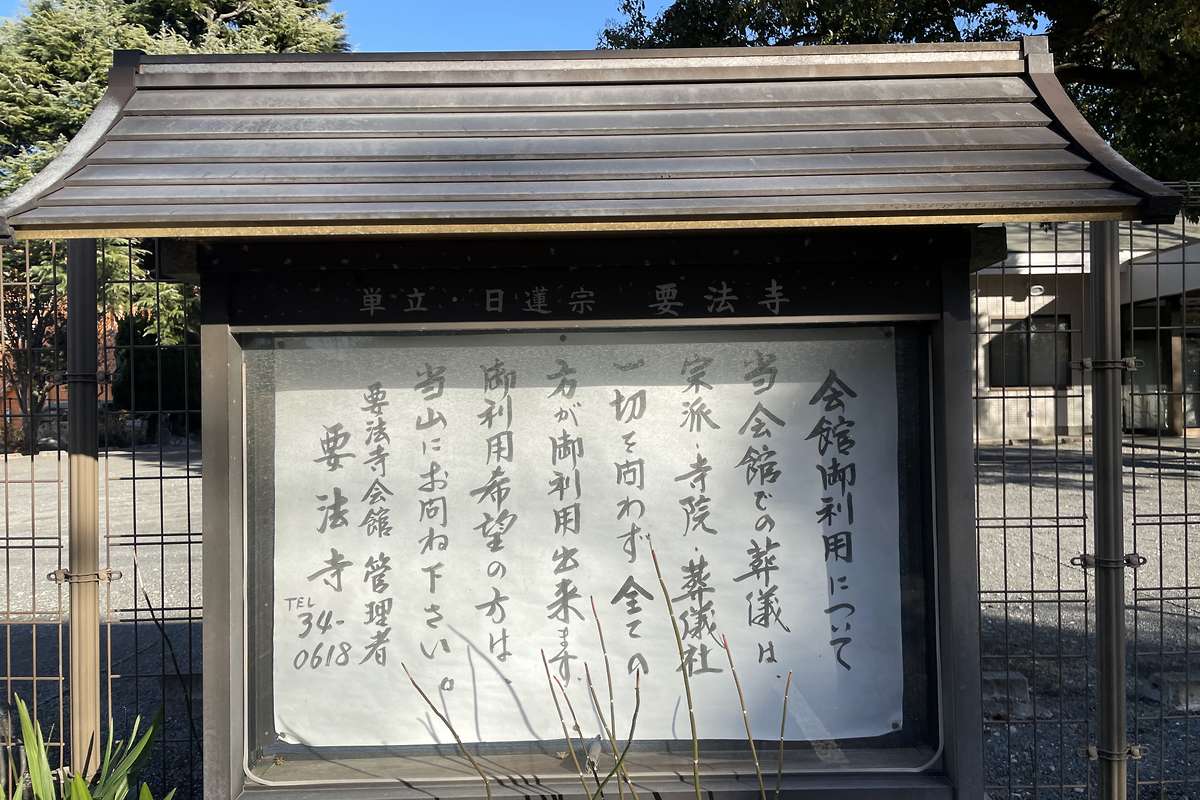 単立・日蓮宗 要法寺
会館御利用について
当会館での葬儀は、
宗派・寺院・葬儀社
一切を問わず全ての
方が御利用出来ます。
御利用希望の方は、
当山にお問ね下さい。
要法寺会館 管理者
要法寺
TEL
34-
0618